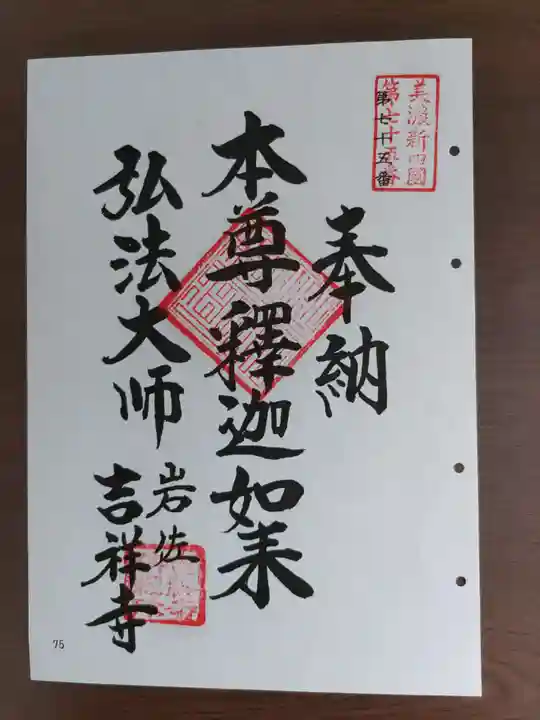 美濃新四國
第七十五番
第七十五番
奉納
本尊釋迦如来
弘法大师
岩佐
吉祥寺
75